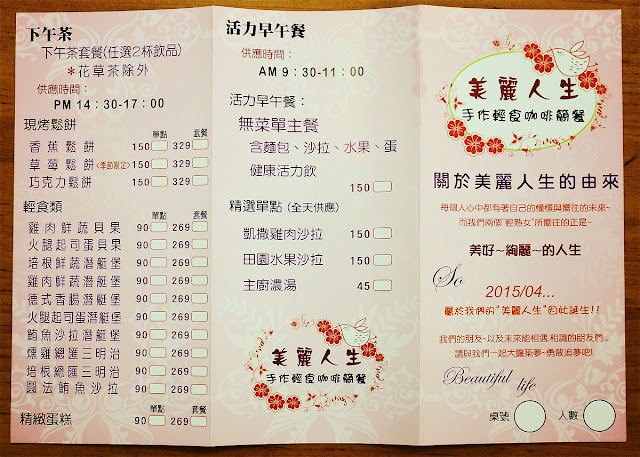 下午茶
下午茶套餐(任選2杯飲品)
*花草茶除外
供應時間：
PM 14：30-17：00
現烤鬆餅 單點 套餐
香蕉鬆餅 150 329
草莓鬆餅<季節限定> 150 329
巧克力鬆餅 150 329
輕食類 單點 套餐
雞肉鮮蔬貝果 90 269
火腿起司蛋貝果 90 269
培根鮮蔬潛艇堡 90 269
雞肉鮮蔬潛艇堡 90 269
德式香腸潛艇堡 90 269
火腿起司蛋潛艇堡 90 269
鮪魚沙拉潛艇堡 90 269
燻雞總匯三明治 90 269
培根總匯三明治 90 269
圓法鮪魚沙拉 90 269
單點 套餐
精緻蛋糕 90 269
活力早午餐
供應時間：
AM 9：30-11：00
活力早午餐：
無菜單主餐
含麵包、沙拉、水果、蛋
健康活力飲
150
精選單點 (全天供應)
凱撒雞肉沙拉 150
田園水果沙拉 150
主廚濃湯 45
美麗人生
手作輕食咖啡簡餐
美麗人生
手作輕食咖啡簡餐
關於美麗人生的由來
每個人心中都有著自己的憧憬與嚮往的未來~
而我們兩個"輕熟女"所嚮往的正是~
美好~絢麗~的人生
So
2015/04...
屬於我們的"美麗人生"因此誕生!!
我們的朋友~以及未來能相遇.相識的朋友們...
請與我們一起大膽築夢~勇敢追夢吧!
Beautiful life
桌號 人數